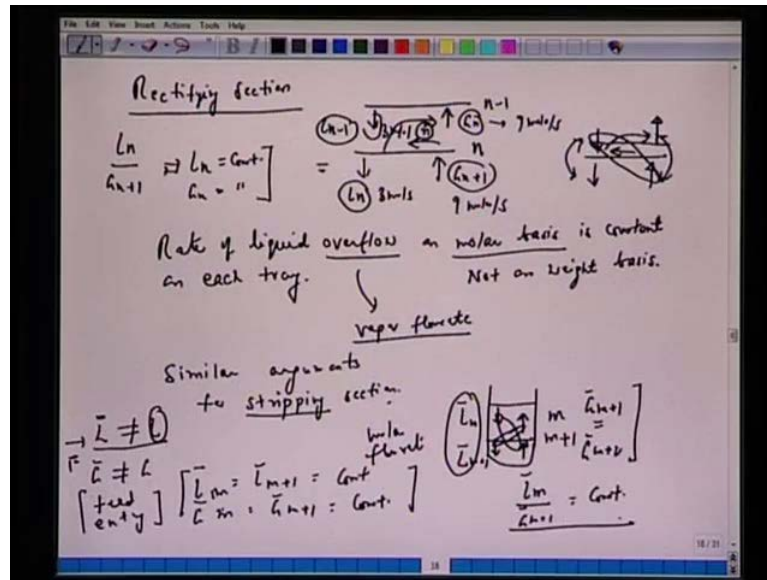 File Edit View Insert Actions Tools Help
B I
Rectifying section
Ln / Gn+1 ⇒ Ln = Const.
Gn = "
=
n-1
Ln-1
Gn → 9 mole/s
n
Ln 3 mols
Gn+1
9 mole/s
Rate of liquid overflow on molar basis is constant
on each tray. Not on weight basis.
vapor flowrate
Similar arguments
for stripping section.
→ L̄ ≠ L
F
Ḡ ≠ G
[feed entry]
molar flowrate
L̄m = L̄m+1 = Const
Ḡm = Ḡm+1 = Const.
L̄m
L̄m+1
m
m+1
Ḡm+1
=
Ḡm+2
L̄m / Ḡm+1 = Const.
18/31
18